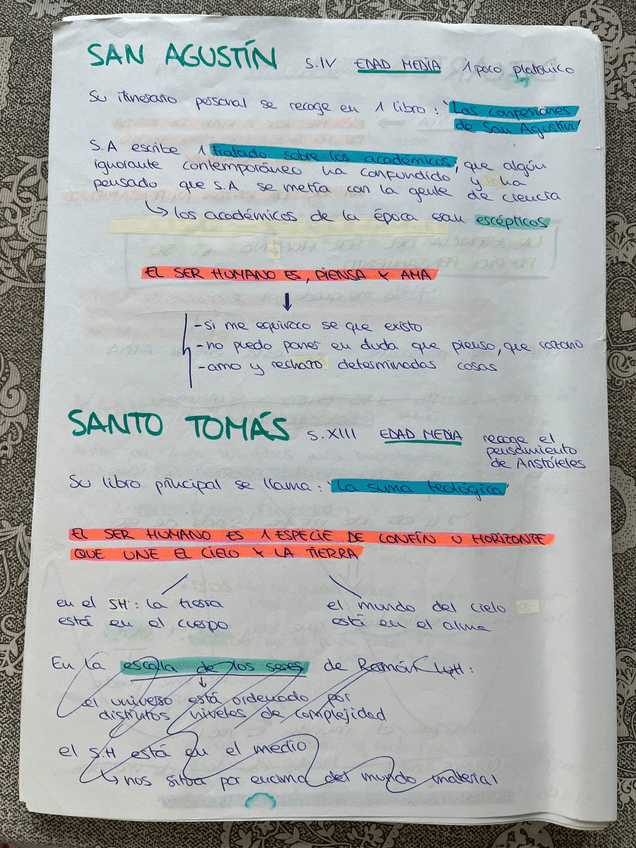 SAN AGUSTÍN S.IV EDAD MEDIA 1 poco platónico
Su itinerario personal se recoge en 1 libro: "Las confesiones
de San Agustín"
S.A escribe 1 tratado sobre los académicos, que algún
ignorante contemporáneo ha confundido y ha
pensado que S.A se metía con la gente de ciencia
↳ los académicos de la época eran escépticos
EL SER HUMANO ES, PIENSA Y AMA
↓
-si me equivoco se que existo
-no puedo poner en duda que pienso, que razono
-amo y rechazo determinadas cosas
SANTO TOMÁS S.XIII EDAD MEDIA recoge el
pensamiento
de Aristóteles
Su libro principal se llama: "La suma teológica"
EL SER HUMANO ES 1 ESPECIE DE CONFÍN U HORIZONTE
QUE UNE EL CIELO Y LA TIERRA
en el SH: la tierra
está en el cuerpo
el mundo del cielo
está en el alma
En la escala de los seres de Ramón Llull:
↓
el universo está ordenado por
distintos niveles de complejidad
el S.H está en el medio
↳ nos situa por encima del mundo material